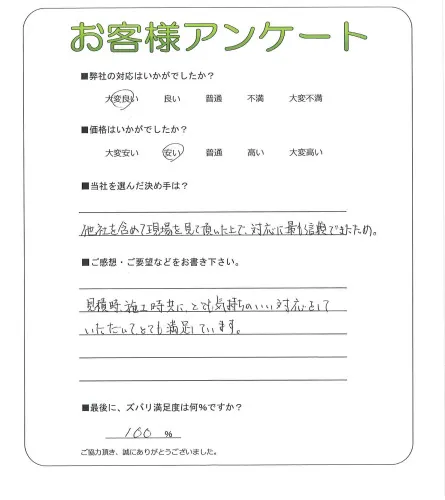 お客様アンケート
■弊社の対応はいかがでしたか？
大変良い 良い 普通 不満 大変不満
■価格はいかがでしたか？
大変安い 安い 普通 高い 大変高い
■当社を選んだ決め手は？
他社を含めて現場を見て頂いた上で、対応に最も信頼できたため。
■ご感想・ご要望などをお書き下さい。
見積時、施工時共に、とても気持ちのいい対応をして
いただいて、とても満足しています。
■最後に、ズバリ満足度は何%ですか？
100 %
ご協力頂き、誠にありがとうございました。